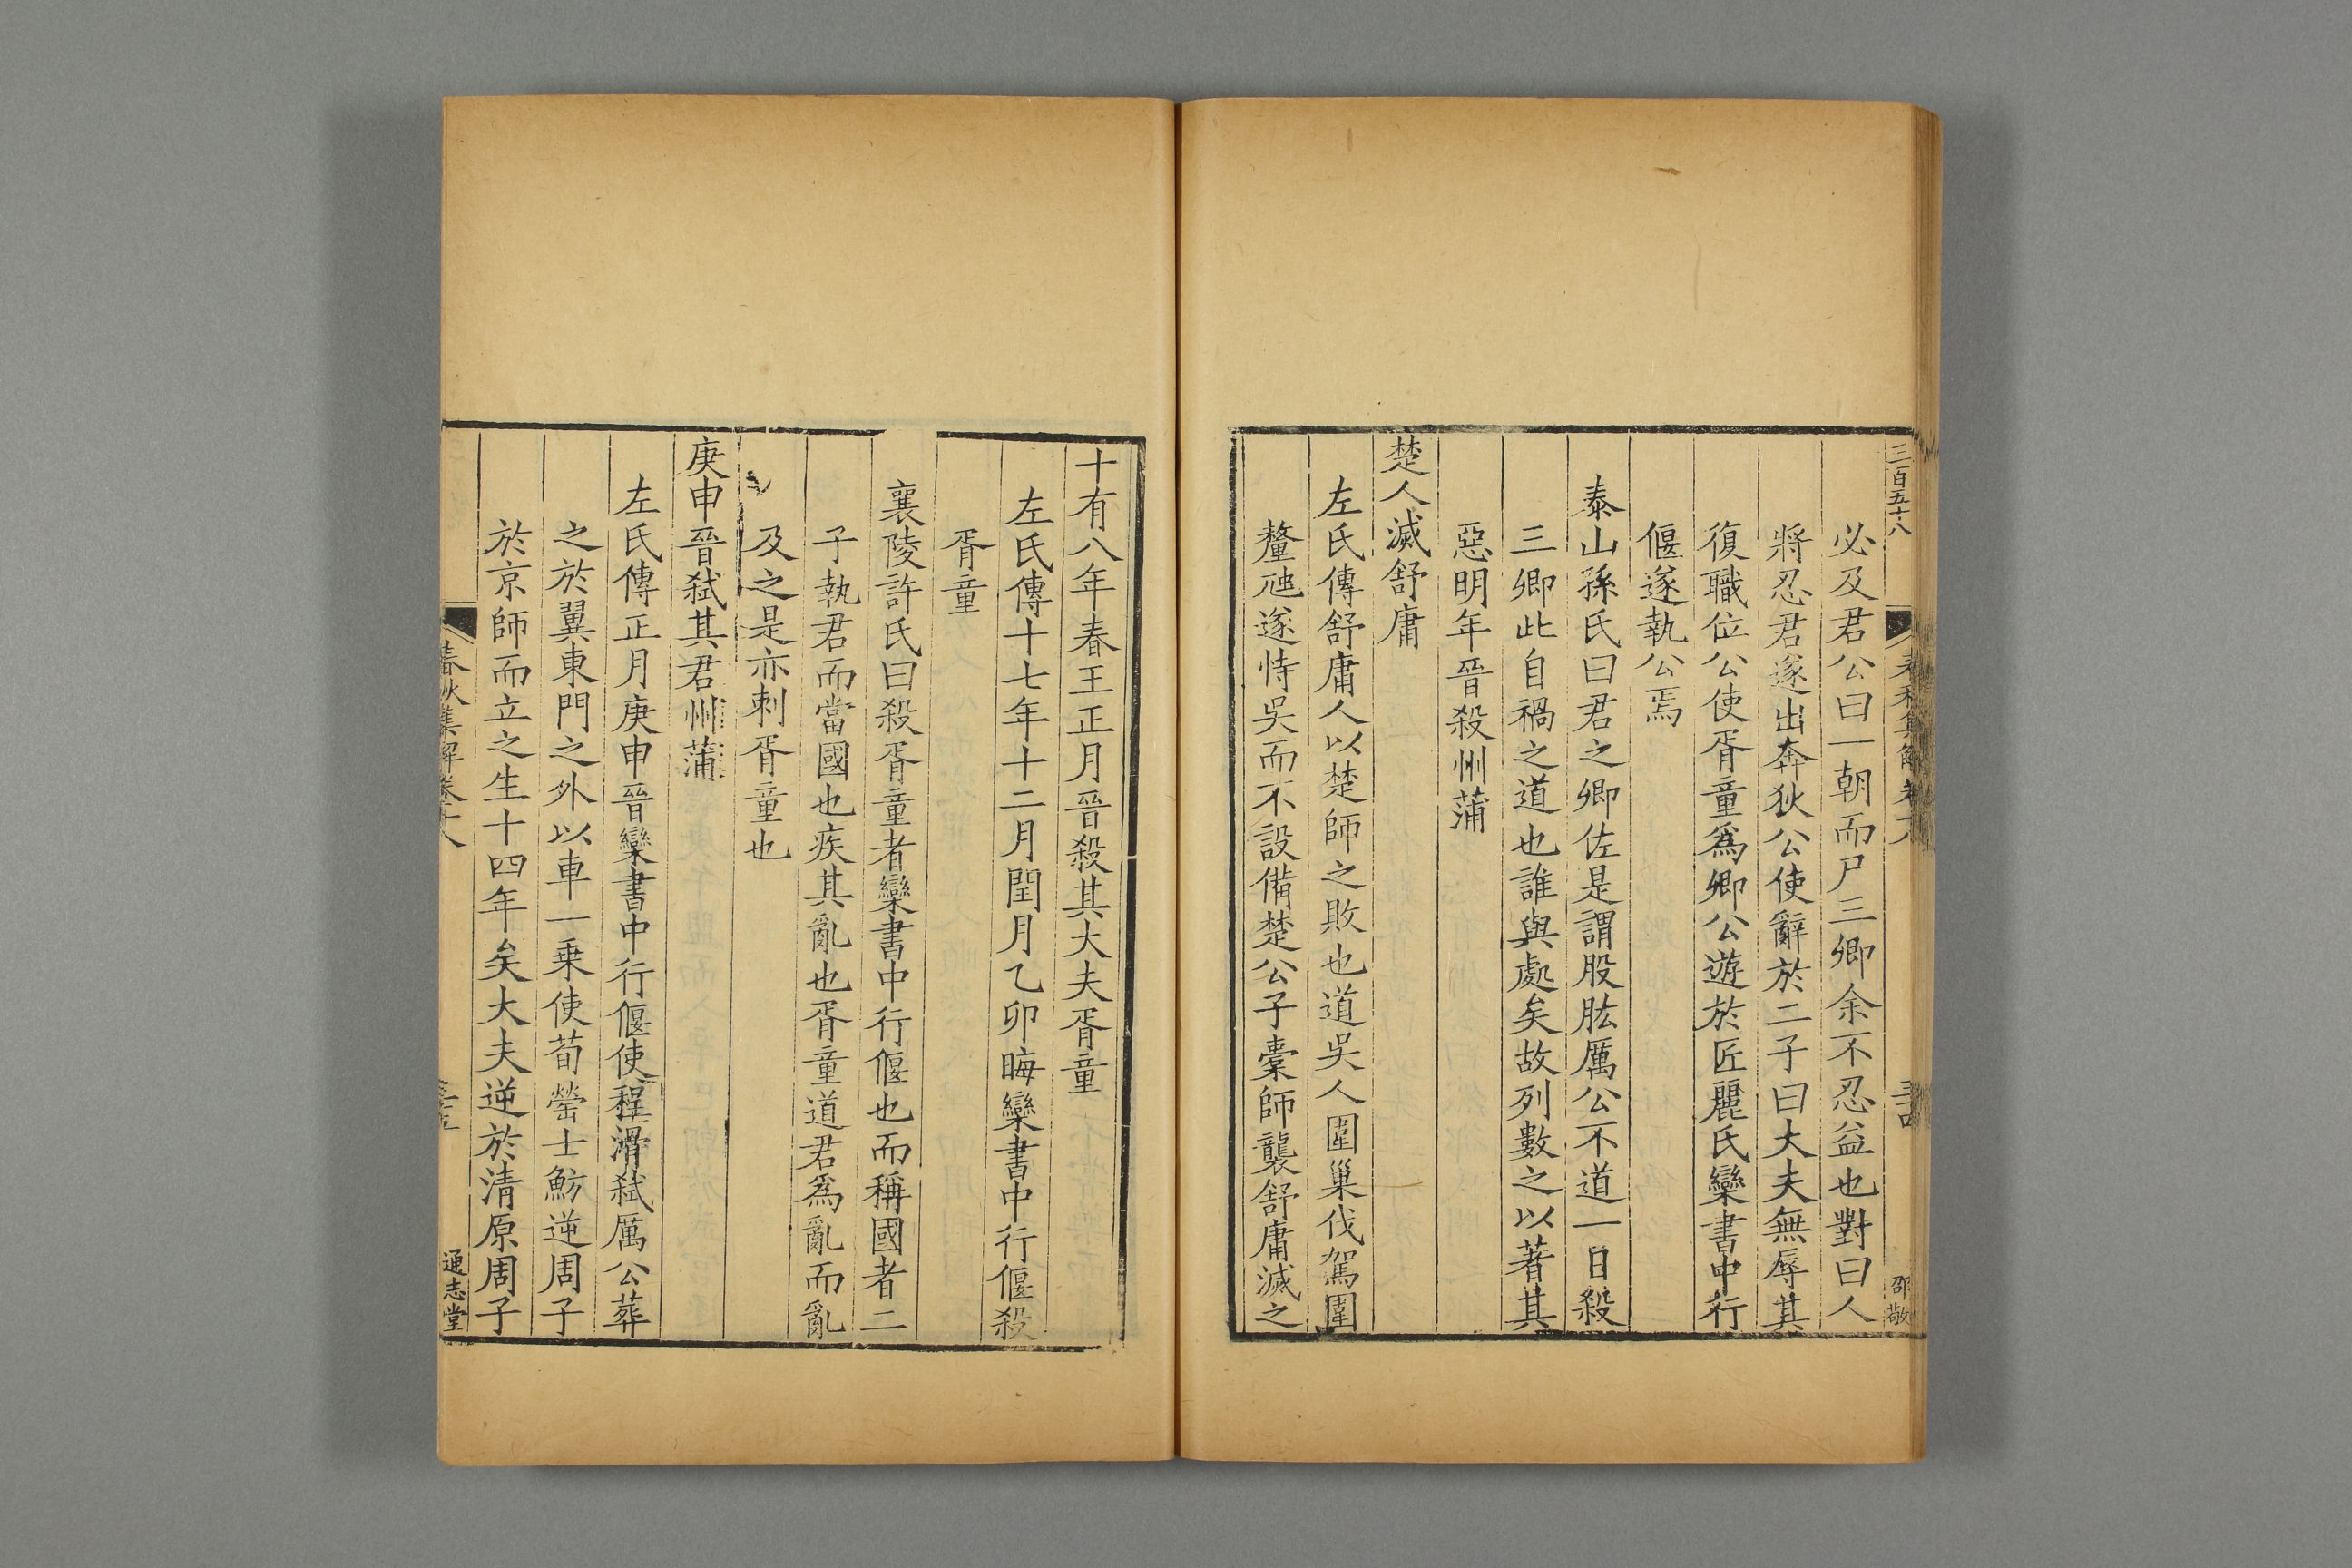 三百五十八
邵敬
必及君公曰一朝而尸三卿余不忍益也對曰人
將忍君遂出奔狄公使辭於二子曰大夫無辱其
復職位公使胥童爲卿公遊於匠麗氏欒書中行
偃遂執公焉
泰山孫氏曰君之卿佐是謂股肱厲公不道一日殺
三卿此自禍之道也誰與處矣故列數之以著其
惡明年晉殺州蒲
楚人滅舒庸
左氏傳舒庸人以楚師之敗也道吳人圍巢伐駕圍
釐虺遂恃吳而不設備楚公子橐師襲舒庸滅之
十有八年春王正月晉殺其大夫胥童
左氏傳十七年十二月閏月乙卯晦欒書中行偃殺
胥童
襄陵許氏曰殺胥童者欒書中行偃也而稱國者二
子執君而當國也疾其亂也胥童道君爲亂而亂
及之是亦刺胥童也
庚申晉弑其君州蒲
左氏傳正月庚申晉欒書中行偃使程滑弑厲公葬
之於翼東門之外以車一乗使荀罃士魴逆周子
於京師而立之生十四年矣大夫逆於清原周子
春秋集解卷十八
通志堂